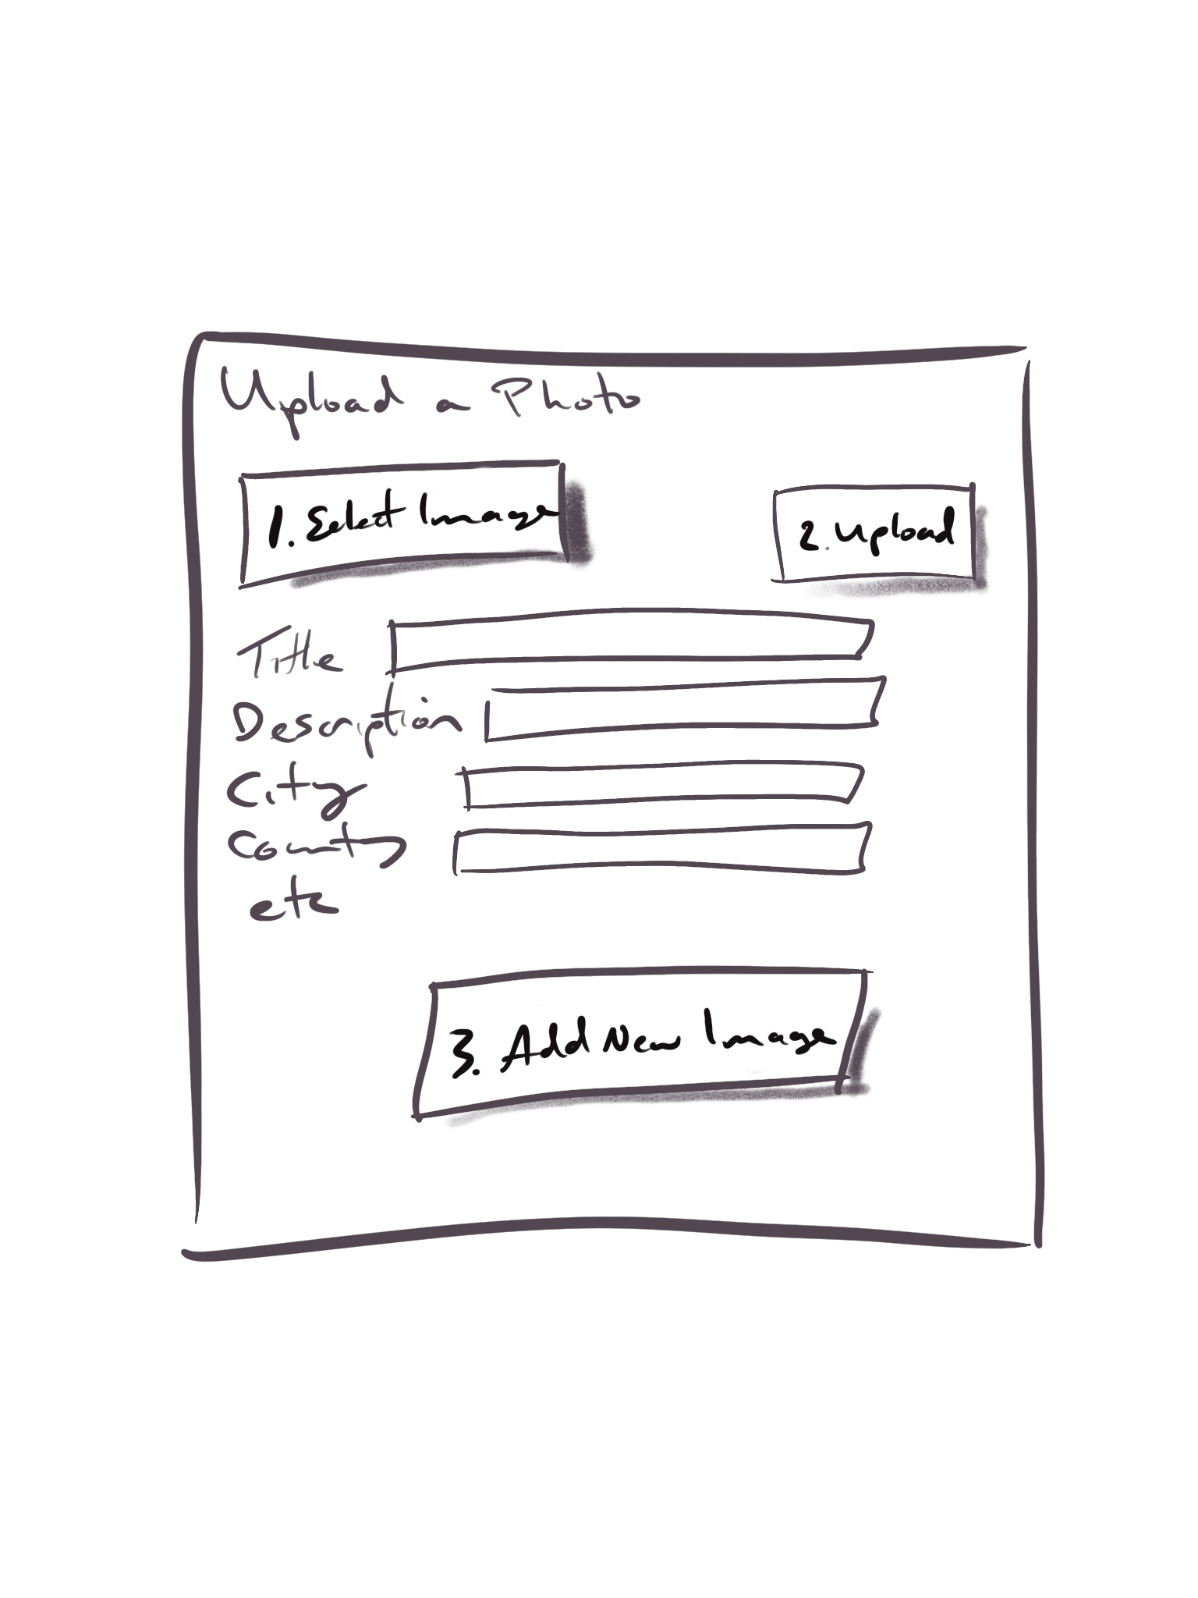 Upload a Photo
1. Select Image
2. Upload
Title
Description
City
County
etc
3. Add New Image